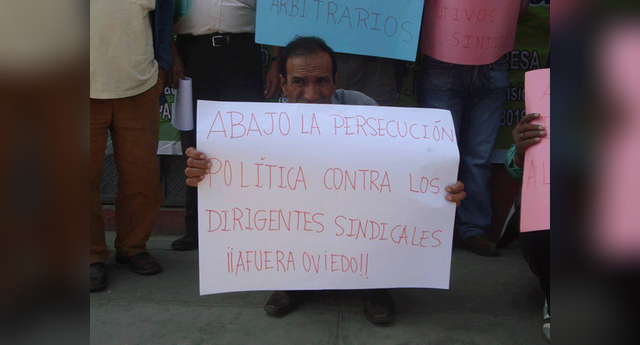 ARBITRARIOS
TIVOS
SINDI
ABAJO LA PERSECUCIÓN
POLÍTICA CONTRA LOS
DIRIGENTES SINDICALES
¡¡AFUERA OVIEDO!!